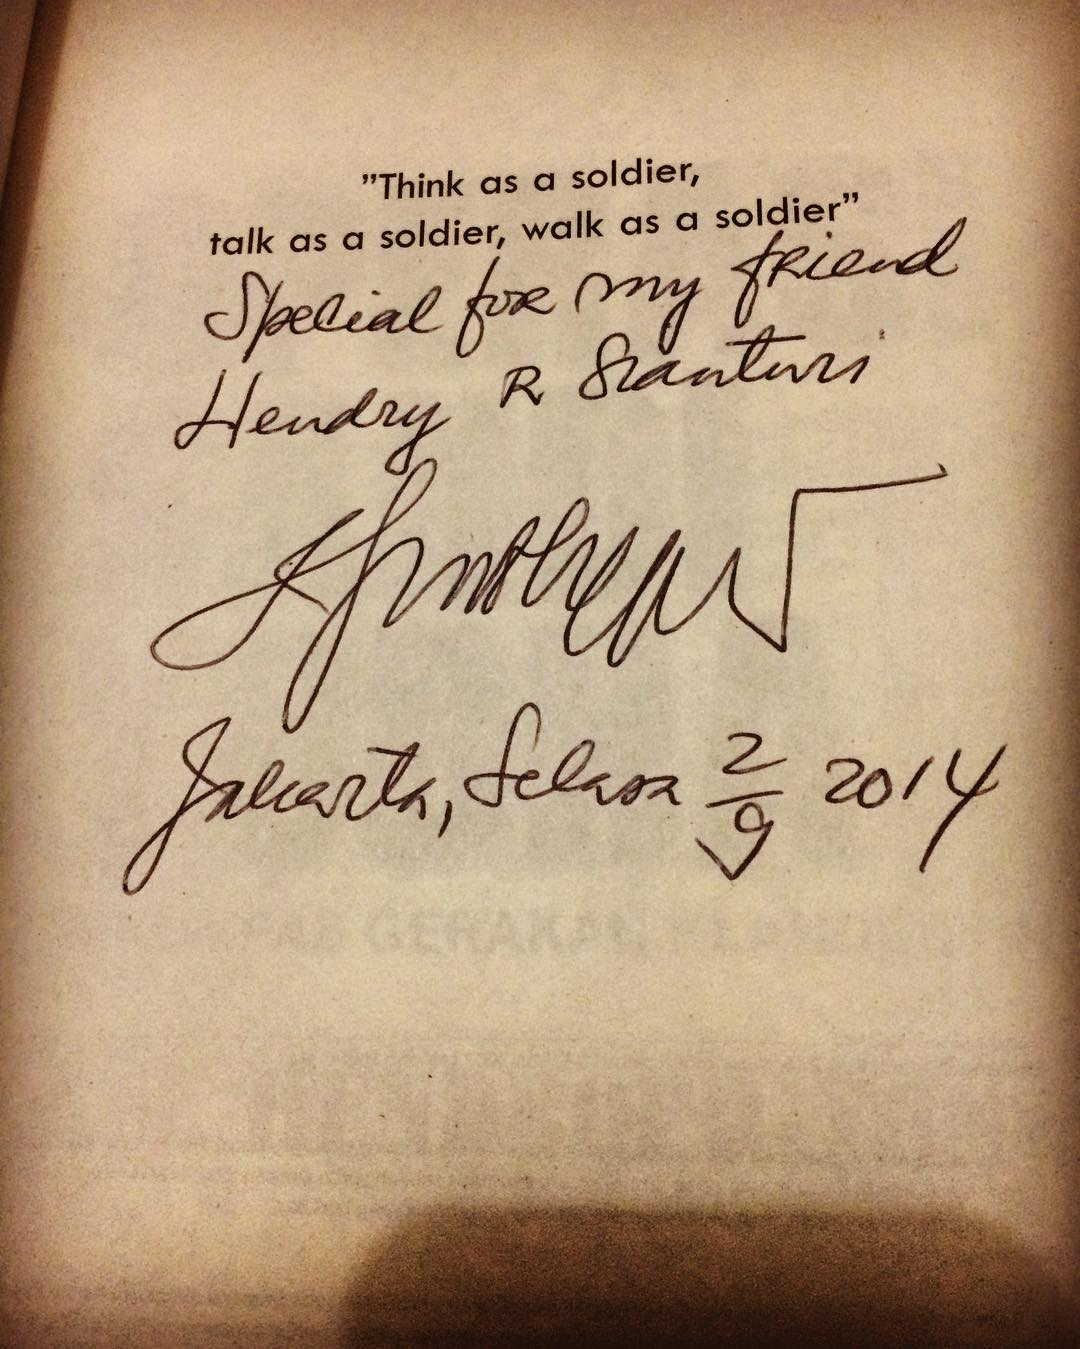 ”Think as a soldier,
talk as a soldier, walk as a soldier”
Special for my friend
Hendry R
Jakarta, Selasa 2/9 2014
GERAKAN